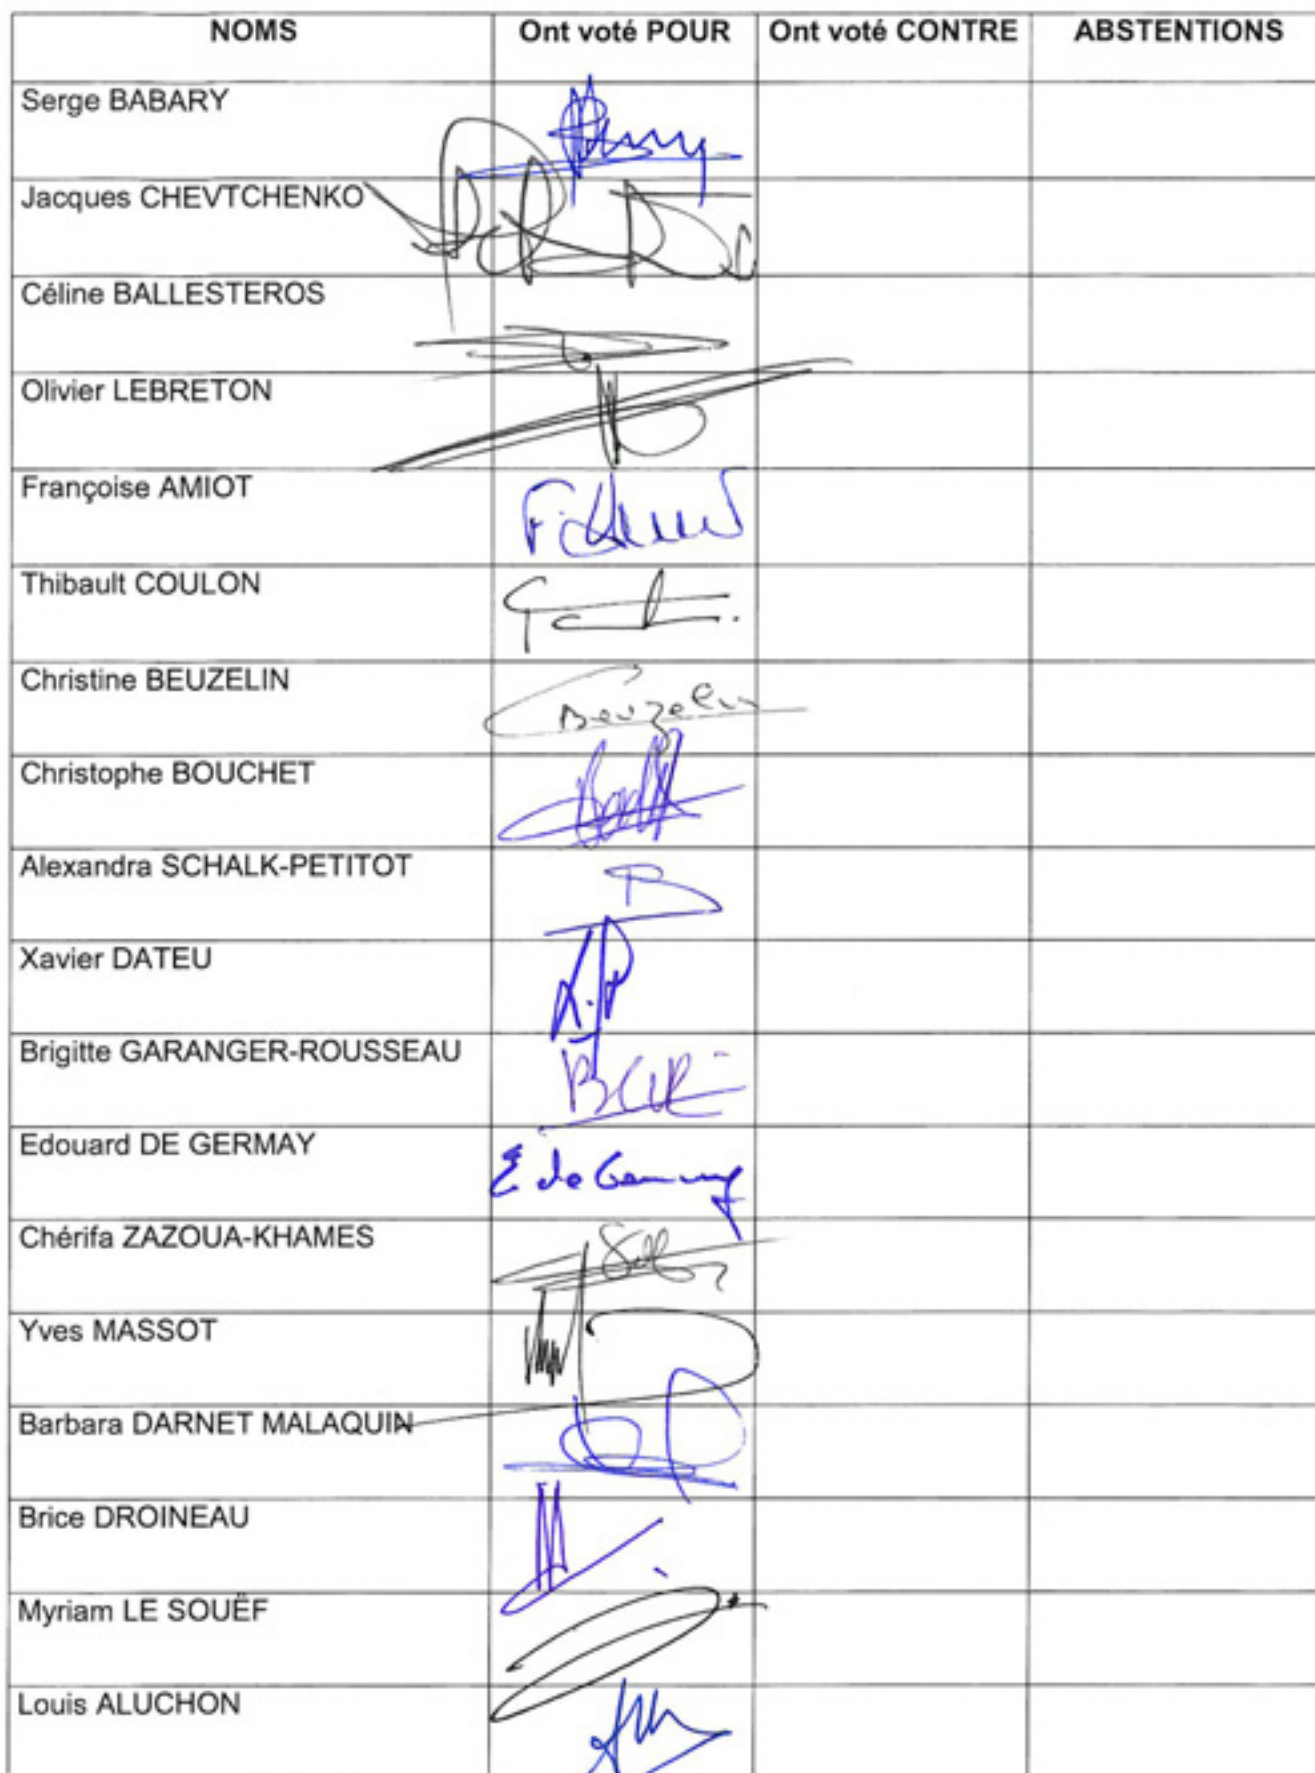 NOMS Ont voté POUR Ont voté CONTRE ABSTENTIONS
Serge BABARY
Jacques CHEVTCHENKO
Céline BALLESTEROS
Olivier LEBRETON
Françoise AMIOT
Thibault COULON
Christine BEUZELIN Beuzelin
Christophe BOUCHET
Alexandra SCHALK-PETITOT
Xavier DATEU
Brigitte GARANGER-ROUSSEAU
Edouard DE GERMAY E de Germay
Chérifa ZAZOUA-KHAMES
Yves MASSOT
Barbara DARNET MALAQUIN
Brice DROINEAU
Myriam LE SOUËF
Louis ALUCHON